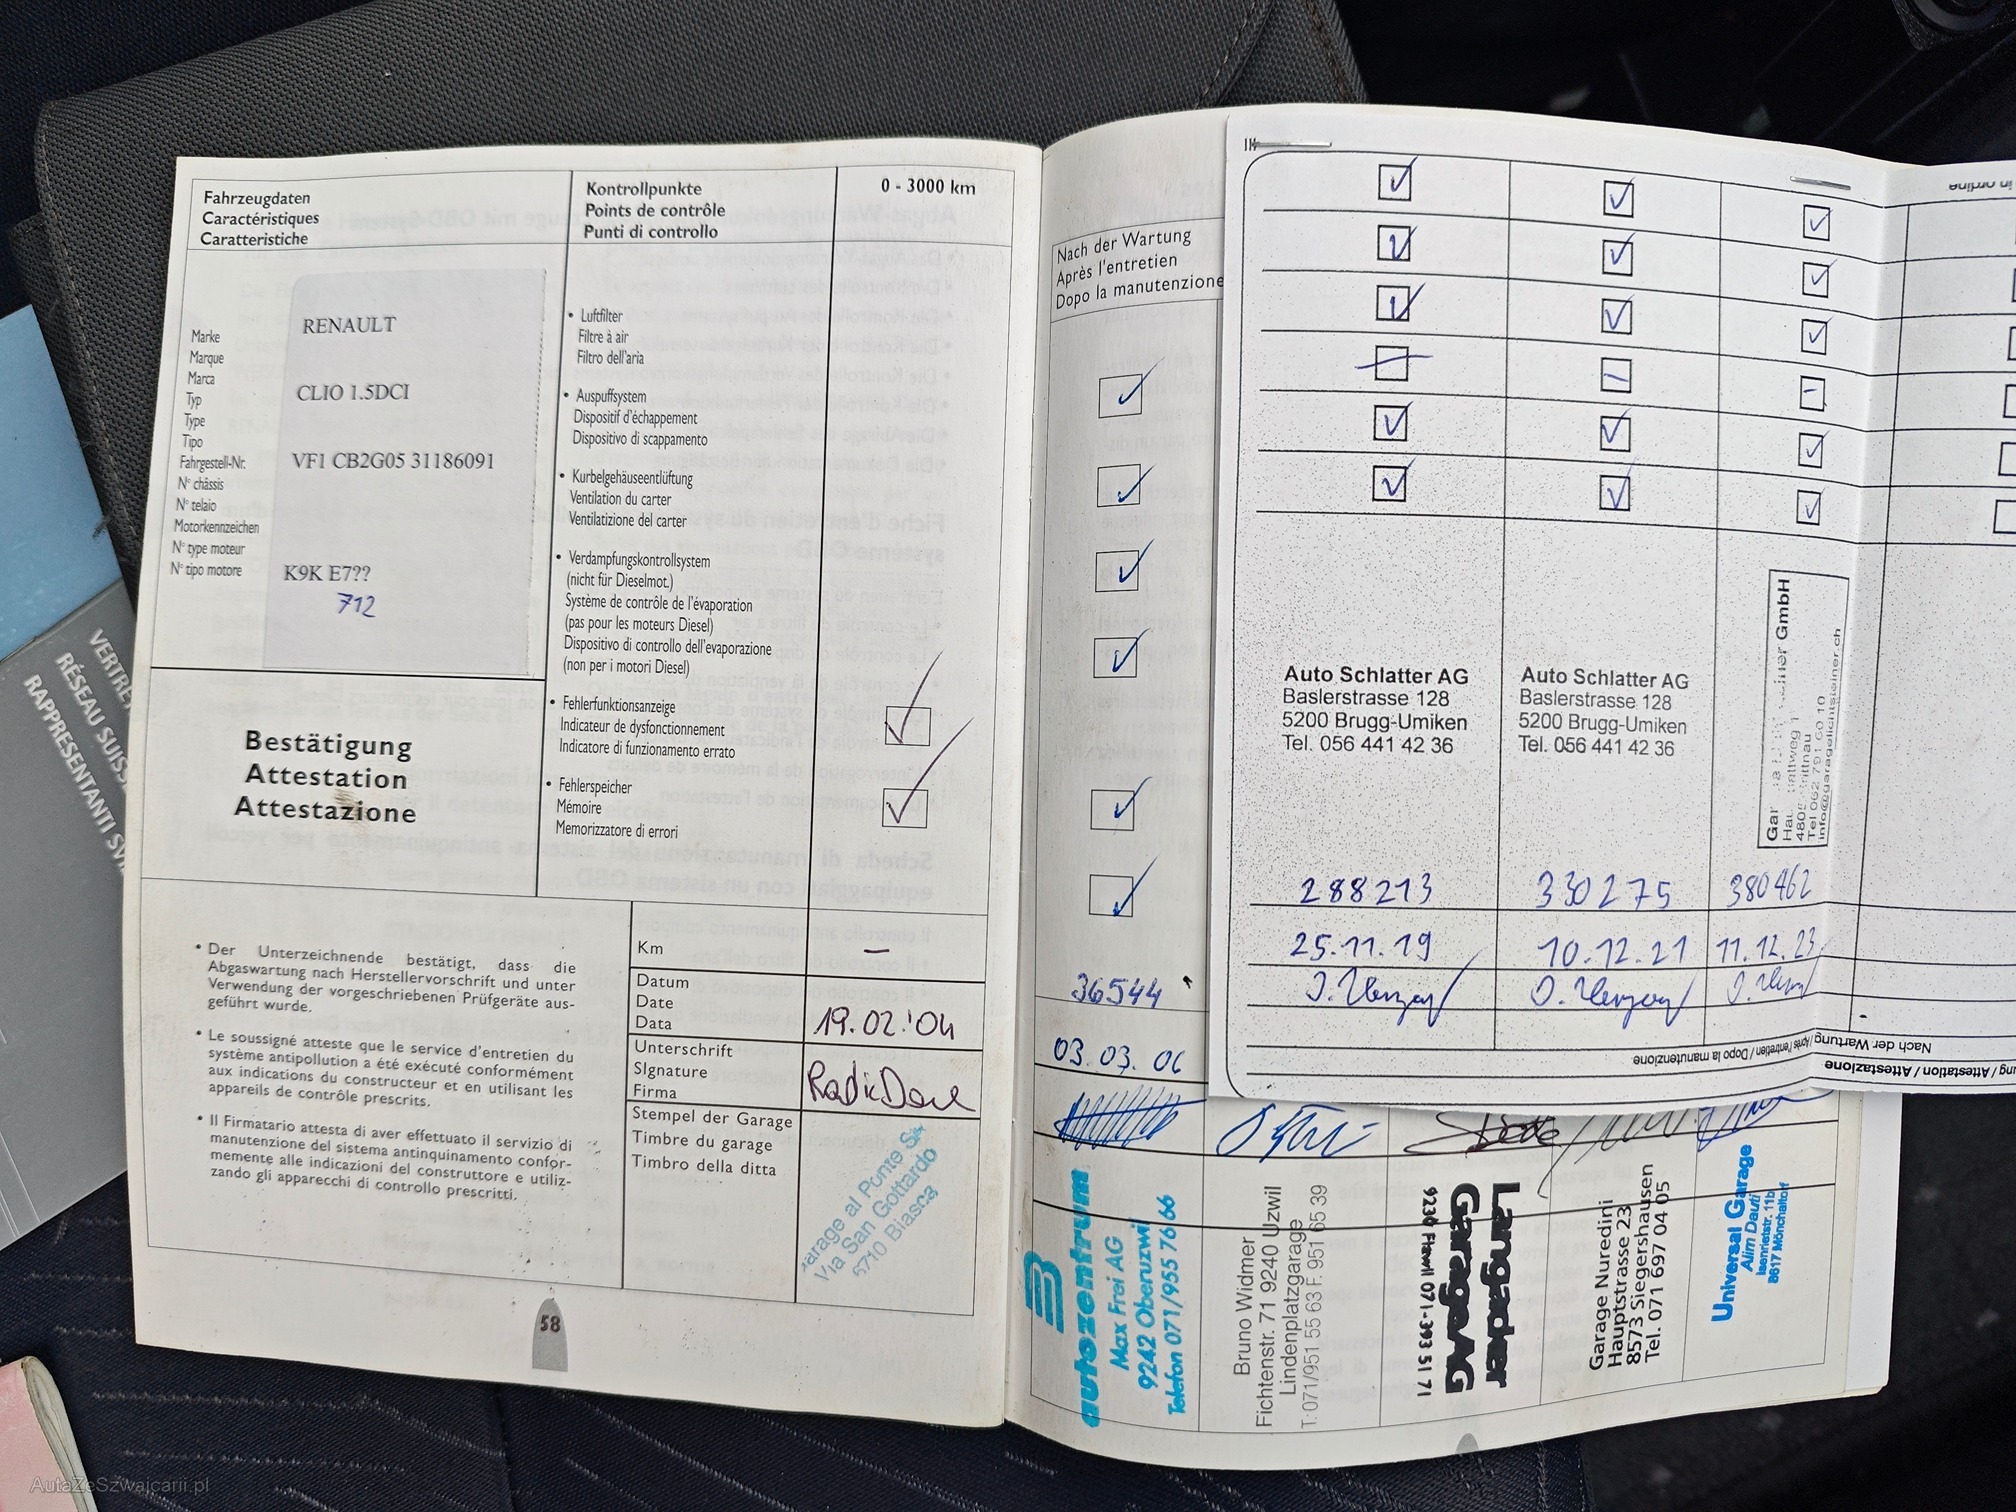 Fahrzeugdaten
Caractéristiques
Caratteristiche
Kontrollpunkte
Points de contrôle
Punti di controllo
0 - 3000 km
Marke
Marque
Marca
Typ
Type
Tipo
Fahrgestell-Nr.
N° châssis
N° telaio
Motorkennzeichen
N° type moteur
N° tipo motore
RENAULT
CLIO 1.5DCI
VF1 CB2G05 31186091
K9K E7??
712
• Luftfilter
Filtre à air
Filtro dell'aria
• Auspuffsystem
Dispositif d'échappement
Dispositivo di scappamento
• Kurbelgehäuseentlüftung
Ventilation du carter
Ventilatizione del carter
• Verdampfungskontrollsystem
(nicht für Dieselmot.)
Système de contrôle de l'évaporation
(pas pour les moteurs Diesel)
Dispositivo di controllo dell'evaporazione
(non per i motori Diesel)
• Fehlerfunktionsanzeige
Indicateur de dysfonctionnement
Indicatore di funzionamento errato
• Fehlerspeicher
Mémoire
Memorizzatore di errori
Bestätigung
Attestation
Attestazione
• Der Unterzeichnende bestätigt, dass die
Abgaswartung nach Herstellervorschrift und unter
Verwendung der vorgeschriebenen Prüfgeräte aus-
geführt wurde.
• Le soussigné atteste que le service d'entretien du
système antipollution a été exécuté conformément
aux indications du constructeur et en utilisant les
appareils de contrôle prescrits.
• Il Firmatario attesta di aver effettuato il servizio di
manutenzione del sistema antinquinamento confor-
memente alle indicazioni del construttore e utiliz-
zando gli apparecchi di controllo prescritti.
Km
–
Datum
Date
Data
19.02.'04
Unterschrift
SIgnature
Firma
Stempel der Garage
Timbre du garage
Timbro della ditta
arage al Punte SA
Via San Gottardo
6710 Biasca
58
Nach der Wartung
Après l'entretien
Dopo la manutenzione
36544
03.03.06
autozentrum
Max Frei AG
9242 Oberuzwil
Telefon 071/955 76 66
Bruno Widmer
Fichtenstr. 71 9240 Uzwil
Lindenplatzgarage
T. 071/951 55 63 F. 951 65 39
Langacker
Garage AG
9230 Flawil 071-393 51 71
Garage Nuredini
Hauptstrasse 23
8573 Siegershausen
Tel. 071 697 04 05
Universal Garage
Alim Dauti
Isenrietstr. 11b
8617 Mönchaltorf
Auto Schlatter AG
Baslerstrasse 128
5200 Brugg-Umiken
Tel. 056 441 42 36
Auto Schlatter AG
Baslerstrasse 128
5200 Brugg-Umiken
Tel. 056 441 42 36
GmbH
Tel 062
288213
330275
380462
25.11.19
10.12.21
11.12.23
Nach der Wartung / Après l'entretien / Dopo la manutenzione
/ Attestation / Attestazione
in ordine
RÉSEAU SUISS
RAPPRESENTANTI SV
AutaZeSzwajcarii.pl